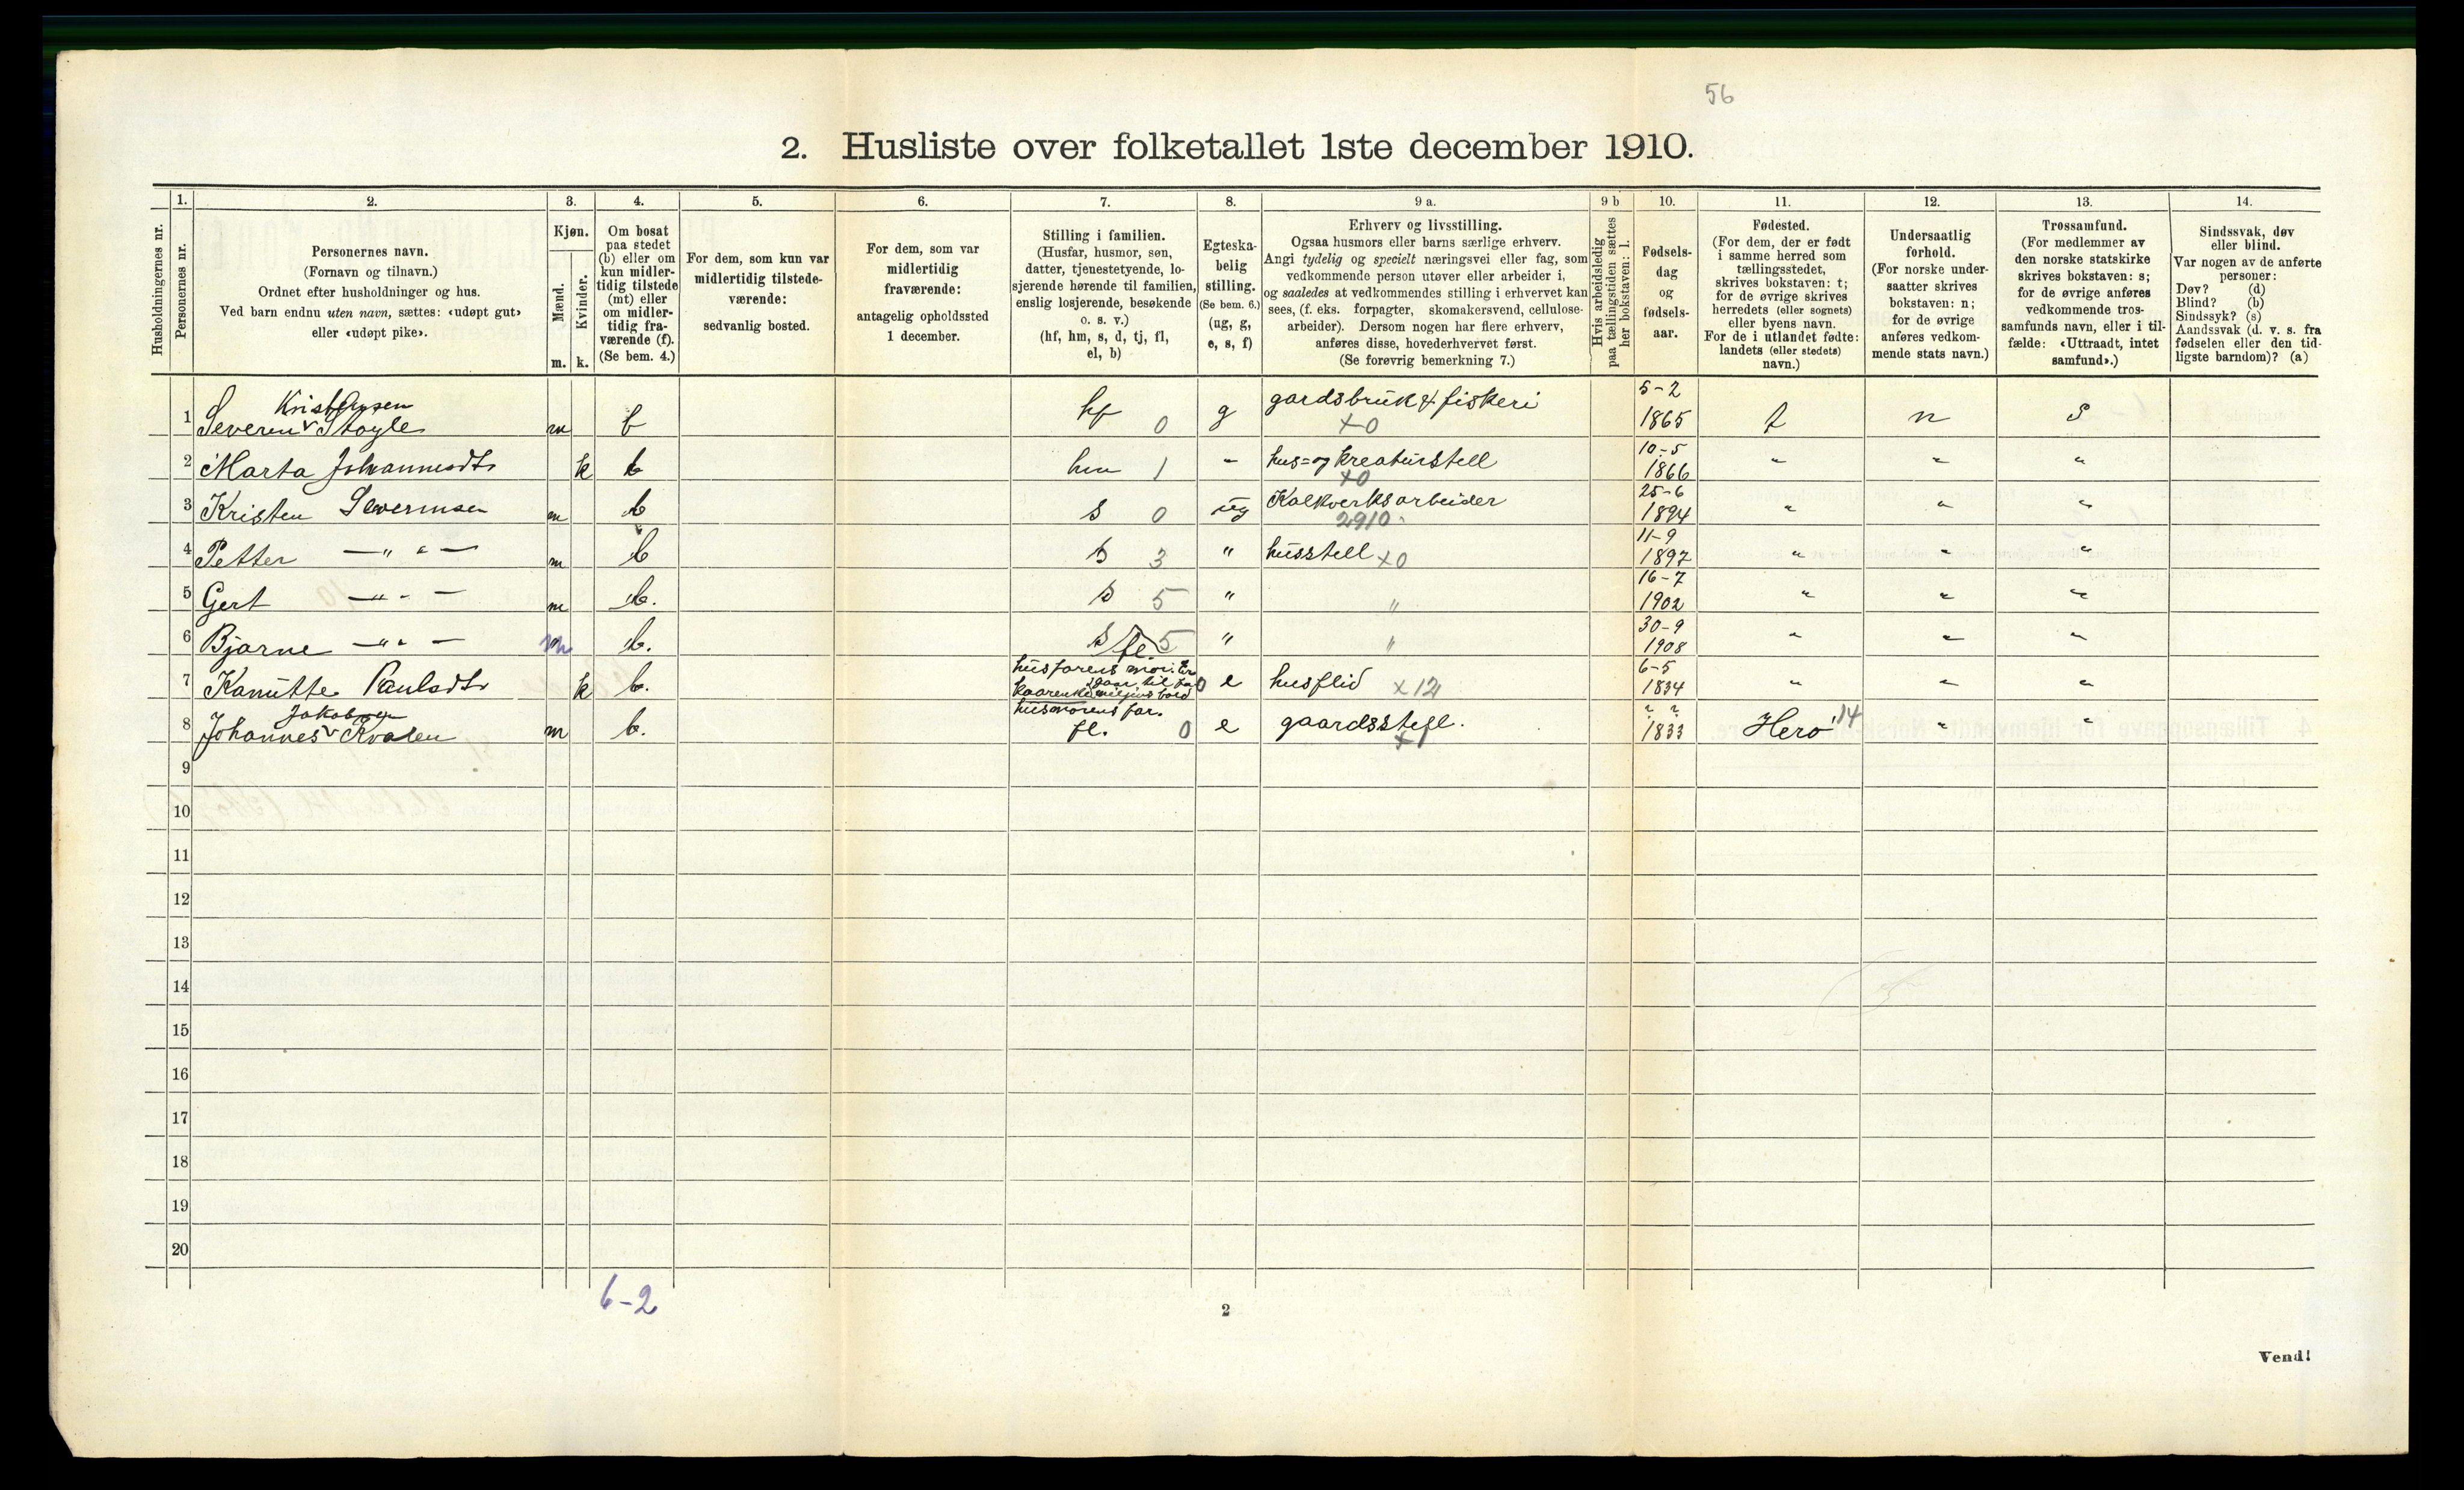 56
2. Husliste over folketallet 1ste december 1910.
Husholdningernes nr.
1.
Personernes nr.
2.
Personernes navn.
(Fornavn og tilnavn.)
Ordnet efter husholdninger og hus.
Ved barn endnu uten navn, sættes: «udøpt gut»
eller «udøpt pike».
3.
Kjøn.
Mænd.
Kvinder.
m. k.
4.
Om bosat
paa stedet
(b) eller om
kun midler-
tidig tilstede
(mt) eller
om midler-
tidig fra-
værende (f).
(Se bem. 4.)
5.
For dem, som kun var
midlertidig tilstede-
værende:
sedvanlig bosted.
6.
For dem, som var
midlertidig
fraværende:
antagelig opholdssted
1 december.
7.
Stilling i familien.
(Husfar, husmor, søn,
datter, tjenestetyende, lo-
sjerende hørende til familien,
enslig losjerende, besøkende
o. s. v.)
(hf, hm, s, d, tj, fl,
el, b)
8.
Egteska-
belig
stilling.
(Se bem. 6.)
(ug, g,
e, s, f)
9 a.
Erhverv og livsstilling.
Ogsaa husmors eller barns særlige erhverv.
Angi tydelig og specielt næringsvei eller fag, som
vedkommende person utøver eller arbeider i,
og saaledes at vedkommendes stilling i erhvervet kan
sees, (f. eks. forpagter, skomakersvend, cellulose-
arbeider). Dersom nogen har flere erhverv,
anføres disse, hovederhvervet først.
(Se forøvrig bemerkning 7.)
9 b
Hvis arbeidsledig
paa tællingstiden sættes
her bokstaven: l.
10.
Fødsels-
dag
og
fødsels-
aar.
11.
Fødested.
(For dem, der er født
i samme herred som
tællingsstedet,
skrives bokstaven: t;
for de øvrige skrives
herredets (eller sognets)
eller byens navn.
For de i utlandet fødte:
landets (eller stedets)
navn.)
12.
Undersaatlig
forhold.
(For norske under-
saatter skrives
bokstaven: n;
for de øvrige
anføres vedkom-
mende stats navn.)
13.
Trossamfund.
(For medlemmer av
den norske statskirke
skrives bokstaven: s;
for de øvrige anføres
vedkommende tros-
samfunds navn, eller i til-
fælde: «Uttraadt, intet
samfund».)
14.
Sindssvak, døv
eller blind.
Var nogen av de anførte
personer:
Døv? (d)
Blind? (b)
Sindssyk? (s)
Aandssvak (d. v. s. fra
fødselen eller den tid-
ligste barndom)? (a)
Kristensen
1 Severin Støyle m b hf 0 g gardsbruk & fiskeri x0 5-2 1865 t n s
2 Marta Johannesdt k b hm 1 " hus= og kreaturstell x0 10-5 1866 " " "
3 Kristen Severinsen m b s 0 ug Kalkverksarbeider 2910 25-6 1894 " " "
4 Petter — " " — m b s 3 " husstell x0 11-9 1897 " " "
5 Gert — " " — m b. s 5 " " 16-7 1902 " " "
6 Bjarne — " " — m b. s fl 5 " " 30-9 1908 " " "
7 Kanutte Paulsdt k b. husfarens mor. 0 e husflid x12 6-5 1834 " " "
Jakobsen
8 Johannes Kvalen m b. husmorens far. fl. 0 e gaardsstell. x 1833 Herø 14 " "
9
10
11
12
13
14
15
16
17
18
19
20
6-2
2
Vend!